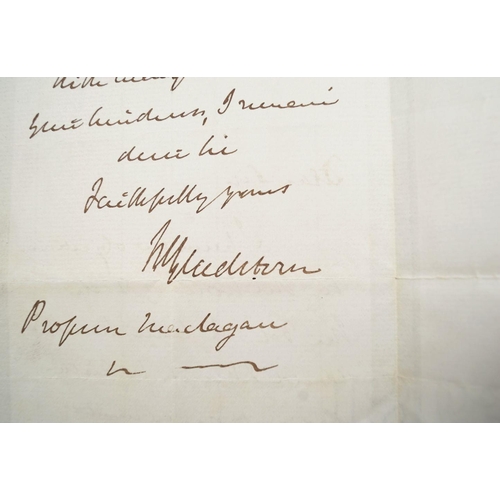 with many
your kindness, I remain
dear Sir
faithfully yours
WGladstone
Professor Maclagan